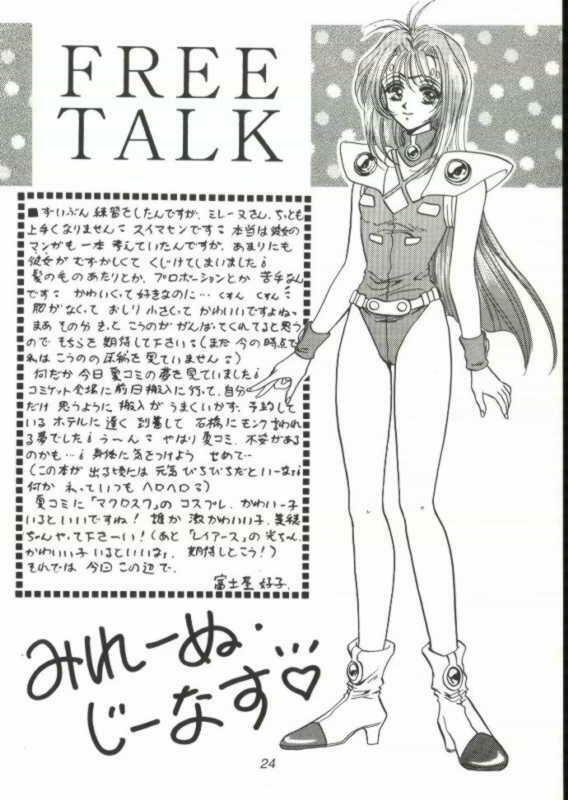 FREE
TALK
■ずいぶん練習をしたんですが、ミレーヌさん、ちっとも
上手くなりません。スイマセンです。本当は彼女の
マンガも一本考えていたんですが、あまりにも
彼女がむずかしくてくじけてしまいました
髪の毛のあたりとか、プロポーションとか苦手なん
です。かわいくって好きなのに…くすんくすん
胸がなくておしり小さくてかわいいですよねっ
まあその分きっとこうのががんばってくれてると思う
のでそちらを期待して下さい。(まだ今の時点で
私はこうのの原稿を見ていません。)
何だか今日夏コミの夢を見ていました
コミケット会場に前日搬入に行って、自分
だけ思うように搬入がうまくいかず、予約して
いるホテルに遅く到着して石橋にモンク言われ
る夢でした う〜ん。やはり夏コミ、不安がある
のかも… 身体に気をつけよう せめて…
(この本が出る頃には元気ぴちぴちだといーな
何かねっていつもヘロヘロ)
夏コミに「マクロス7」のコスプレ、かわいー子
いるといいですね! 誰か激かわいい子、美穂
ちゃんやって下さーい!(あと「レイアース」の光ちゃん
かわいい子いるといいな、期待しとこう!)
それでは今回この辺で、
富士屋好子.
みれーぬ・
じーなす♡
24